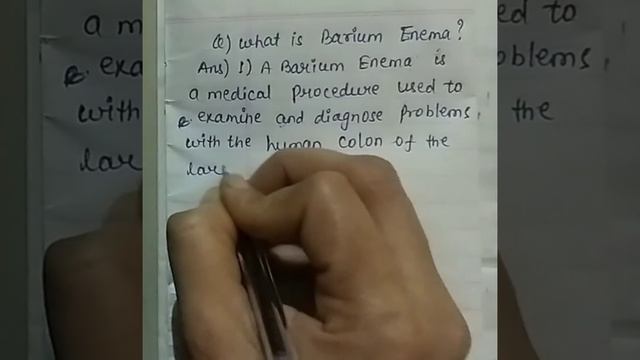 Q) what is Barium Enema?
Ans) 1) A Barium Enema is
a medical procedure used to
examine and diagnose problems,
with the human colon of the
lar